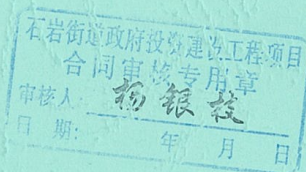 石岩街道政府投资建设工程项目
合同审核专用章
审核人：杨银枝
日　期：　　年　月　日